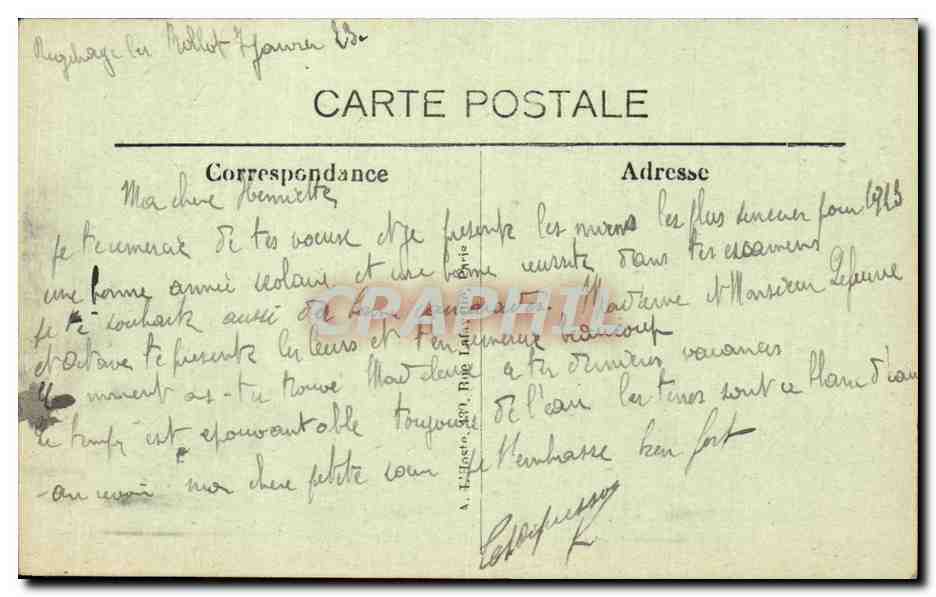 Rollot 7 Janvier 23.
CARTE POSTALE
Correspondance
Adresse
Ma chere Henriette
je te remercie de tes voeux et je presente les miens les plus sinceres pour 1923
une bonne année scolaire et une bonne reussite dans tes examens
je te souhaite aussi de bonnes Madame et Monsieur Lefeuvre
et octave te presente les leurs et t'en remercie beaucoup
comment as-tu trouvé Madeleine a tes dernieres vacances
le temps est epouvantable toujours de l'eau les terres sont a blanc d'eau
au revoir ma chere petite soeur je t'embrasse bien fort
A. L'Hoste, Rue Lafayette, Paris
CRAPHIL